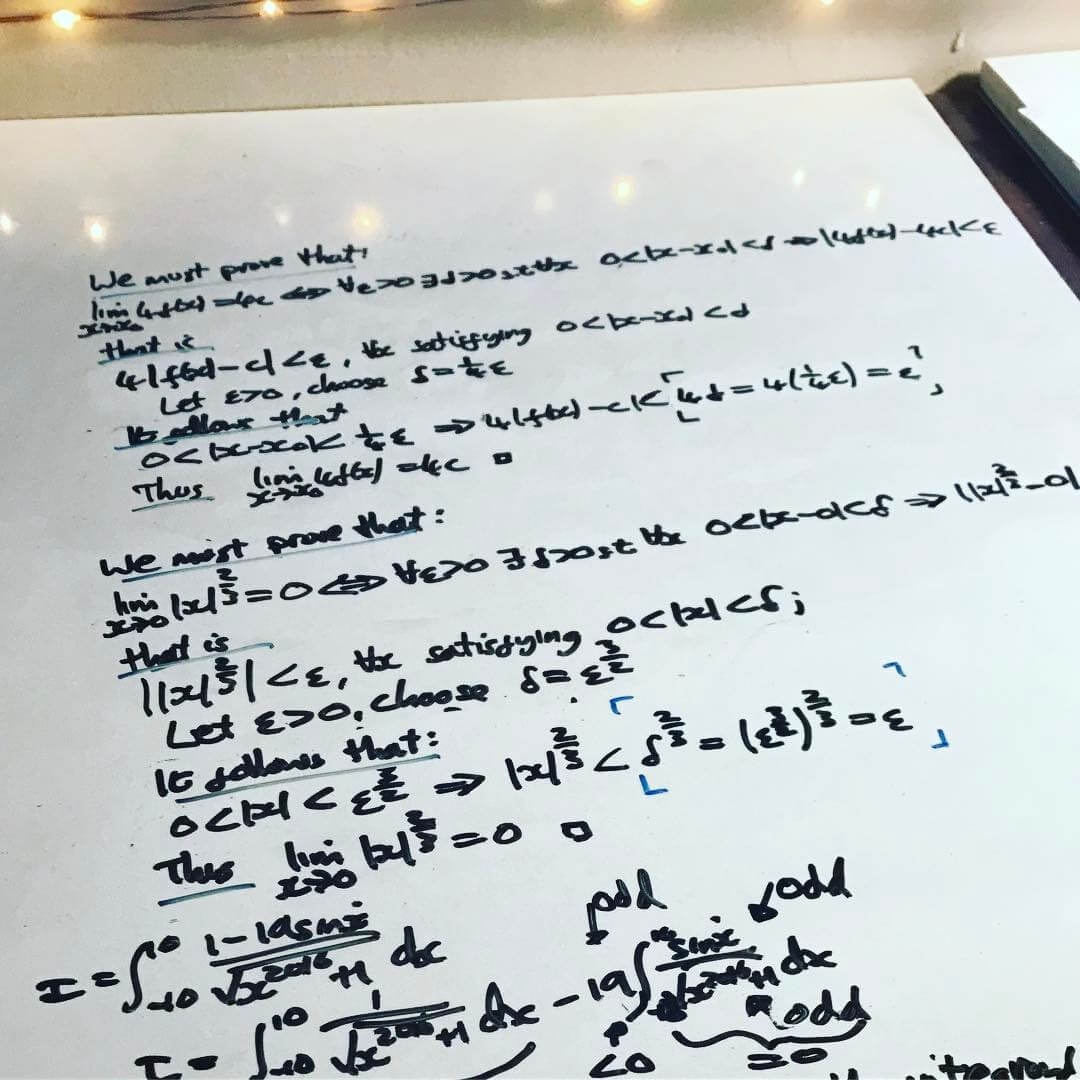 We must prove that:
lim x→x₀ 4f(x) = 4c ⟺ ∀ε>0 ∃δ>0 s.t ∀x 0<|x-x₀|<δ ⟹ |4f(x)-4c|<ε
that is
4|f(x)-c|<ε, ∀x satisfying 0<|x-x₀|<δ
Let ε>0, choose δ=¼ε
It follows that
0<|x-x₀|<¼ε ⟹ 4|f(x)-c|<⌈4δ=4(¼ε)=ε⌉,
Thus lim x→x₀ 4f(x) = 4c □
We must prove that:
lim x→0 |x|^(2/3) = 0 ⟺ ∀ε>0 ∃δ>0 s.t ∀x 0<|x-0|<δ ⟹ ||x|^(2/3)-0|
that is
||x|^(2/3)|<ε, ∀x satisfying 0<|x|<δ;
Let ε>0, choose δ=ε^(3/2)
It follows that:
0<|x|<ε^(3/2) ⟹ |x|^(2/3) < δ^(2/3) = (ε^(3/2))^(2/3) = ε
Thus lim x→0 |x|^(2/3) = 0 □
odd odd
I = ∫₋₁₀^10 (1-19sinx)/√(x^2016+1) dx
I = ∫₋₁₀^10 1/√(x^2016+1) dx - 19∫₋₁₀^10 sinx/√(x^2016+1) dx
odd
=0